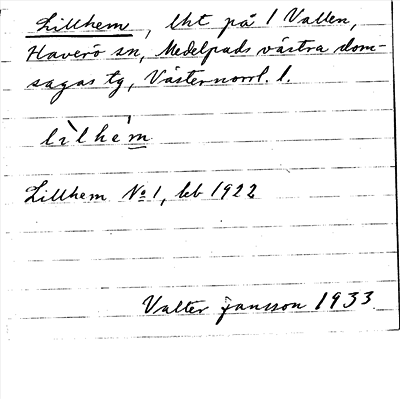 Lillhem, lht på 1 Vallen,
Haverö sn, Medelpads västra dom-
sagas tg, Västernorrl. l.
lìlhém
Lillhem No 1, kb 1922
Valter Jansson 1933